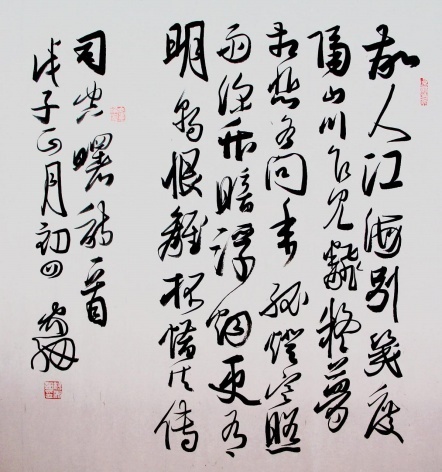 故人江海別幾度
隔山川乍見翻疑夢
相悲各問年孤燈寒照
雨深竹暗浮烟更有
明朝恨離杯惜共傳
司空曙詩一首
戊子正月初四